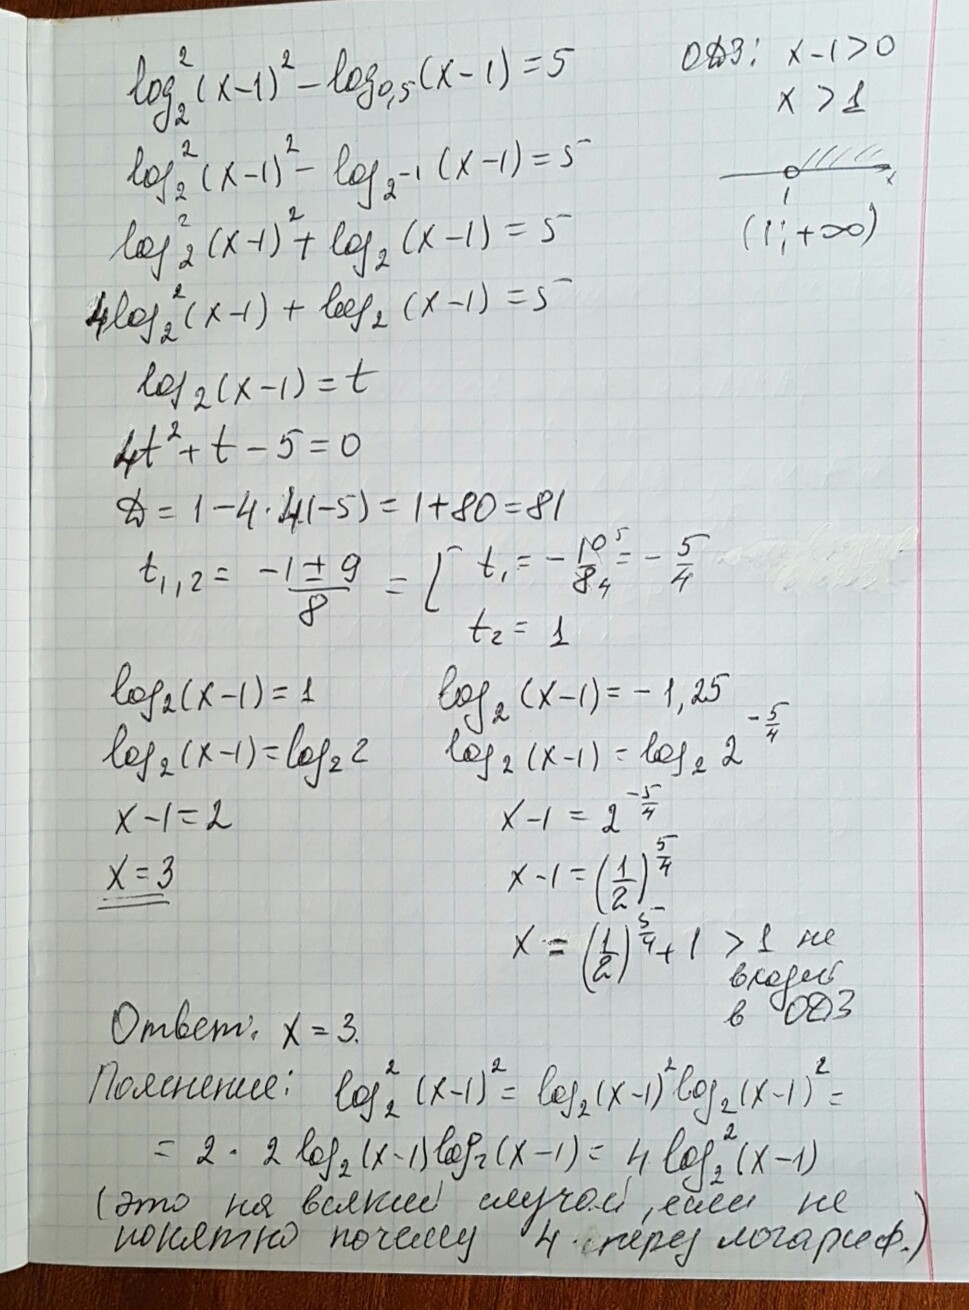 log₂²(x-1)² - log₀,₅(x-1) = 5
ОДЗ: x-1>0
x > 1
log₂²(x-1)² - log₂-1(x-1) = 5
1
x
(1; +∞)
log₂²(x-1)² + log₂(x-1) = 5
4log₂²(x-1) + log₂(x-1) = 5
log₂(x-1) = t
4t² + t - 5 = 0
D = 1-4·4(-5) = 1+80 = 81
t₁,₂ = (-1 ± 9)/8 = [ t₁ = -10/8 5/4 = -5/4
t₂ = 1
log₂(x-1) = 1
log₂(x-1) = log₂2
x-1 = 2
x = 3
log₂(x-1) = -1,25
log₂(x-1) = log₂2^(-5/4)
x-1 = 2^(-5/4)
x-1 = (1/2)^(5/4)
x = (1/2)^(5/4) + 1 > 1 не
входит
в ОДЗ
Ответ: x = 3.
Пояснение: log₂²(x-1)² = log₂(x-1)²log₂(x-1)² =
= 2 · 2 log₂(x-1)log₂(x-1) = 4 log₂²(x-1)
(это на всякий случай, если не
понятно почему 4 перед логариф.)